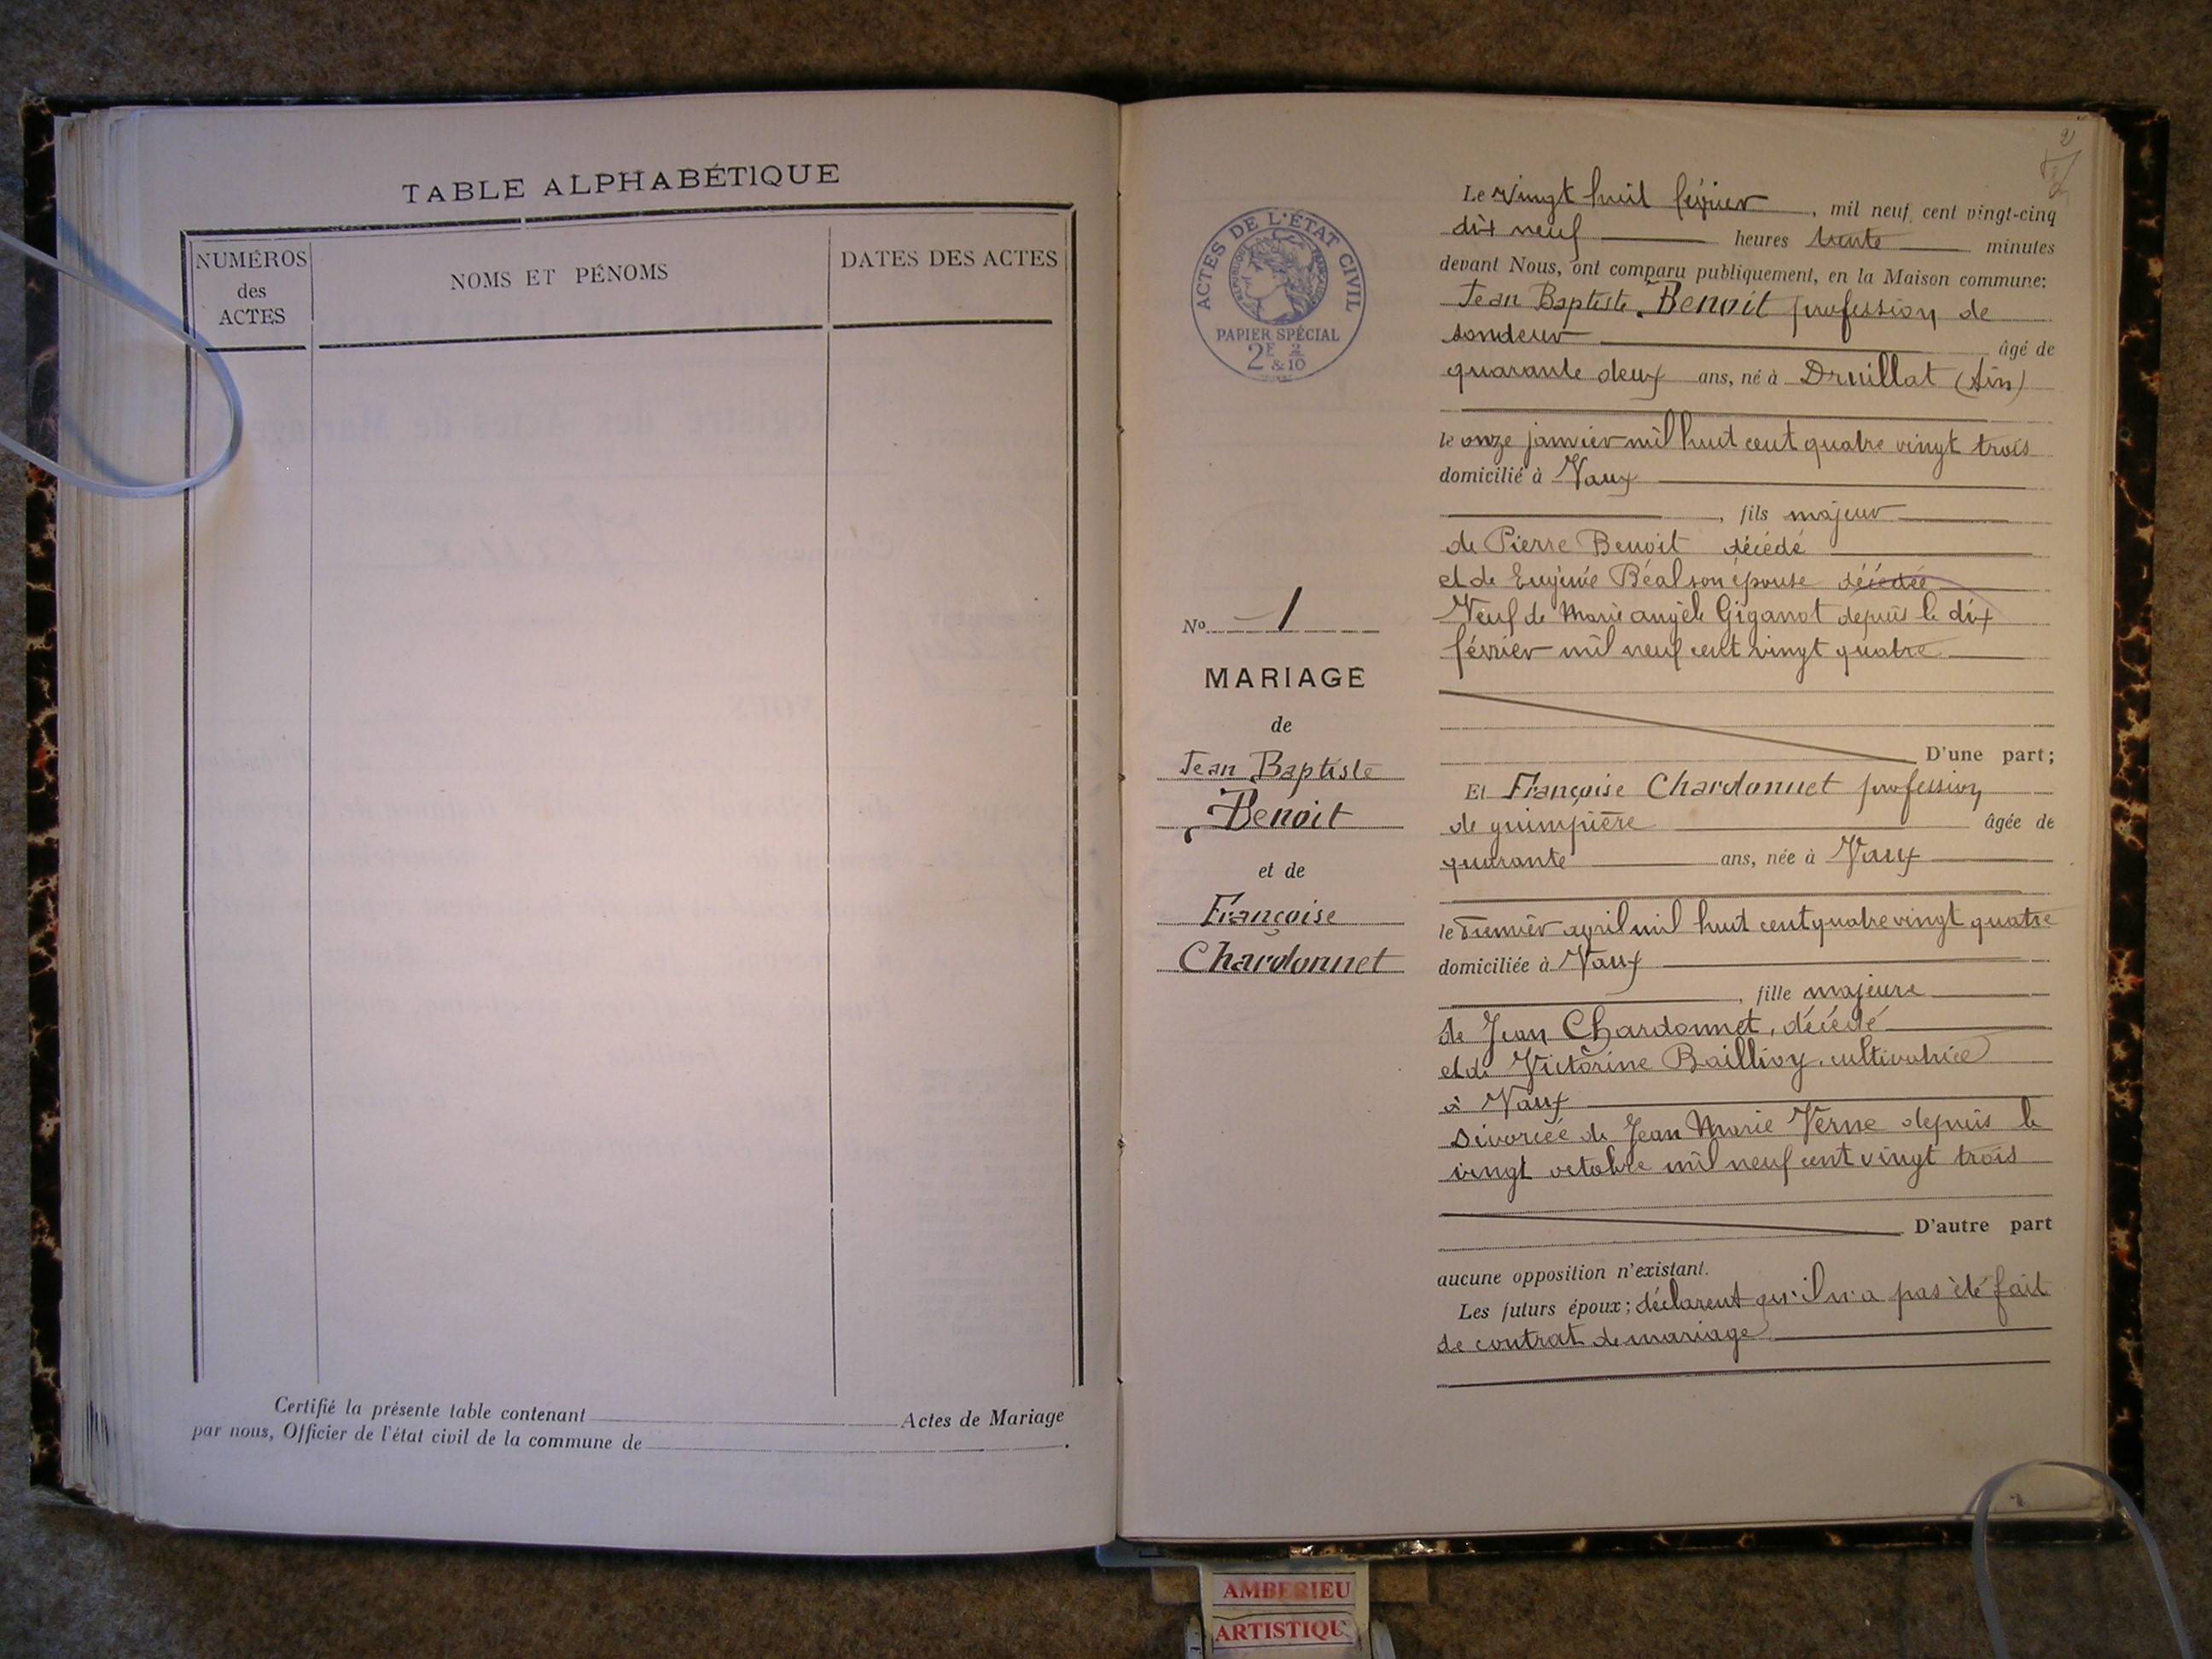 TABLE ALPHABÉTIQUE
NUMÉROS
des
ACTES
NOMS ET PÉNOMS
DATES DES ACTES
Certifié la présente table contenant Actes de Mariage
par nous, Officier de l'état civil de la commune de .
2
ACTES DE L'ÉTAT CIVIL
PAPIER SPÉCIAL
2F & 2/10
No 1
MARIAGE
de
Jean Baptiste
Benoit
et de
Françoise
Chardonnet
Le vingt huit février , mil neuf cent vingt-cinq
dix neuf heures trente minutes
devant Nous, ont comparu publiquement, en la Maison commune:
Jean Baptiste Benoit profession de
sondeur âgé de
quarante deux ans, né à Druillat (Ain)
le onze janvier mil huit cent quatre vingt trois
domicilié à Vaux
, fils majeur
de Pierre Benoit décédé
et de Eugénie Béal son épouse décédée
Veuf de Marie angèle Giganot depuis le dix
février mil neuf cent vingt quatre
D'une part;
Et Françoise Chardonnet profession
de guimpière âgée de
quarante ans, née à Vaux
le avril mil huit cent quatre vingt quatre
domiciliée à Vaux
, fille majeure
de Jean Chardonnet, décédé
et de Victorine Baillivy, cultivatrice
à Vaux
Divorcée de Jean Marie Verne depuis le
vingt octobre mil neuf cent vingt trois
D'autre part
aucune opposition n'existant.
Les futurs époux; déclarent qu'il n'a pas été fait
de contrat de mariage
AMBERIEU
ARTISTIQU